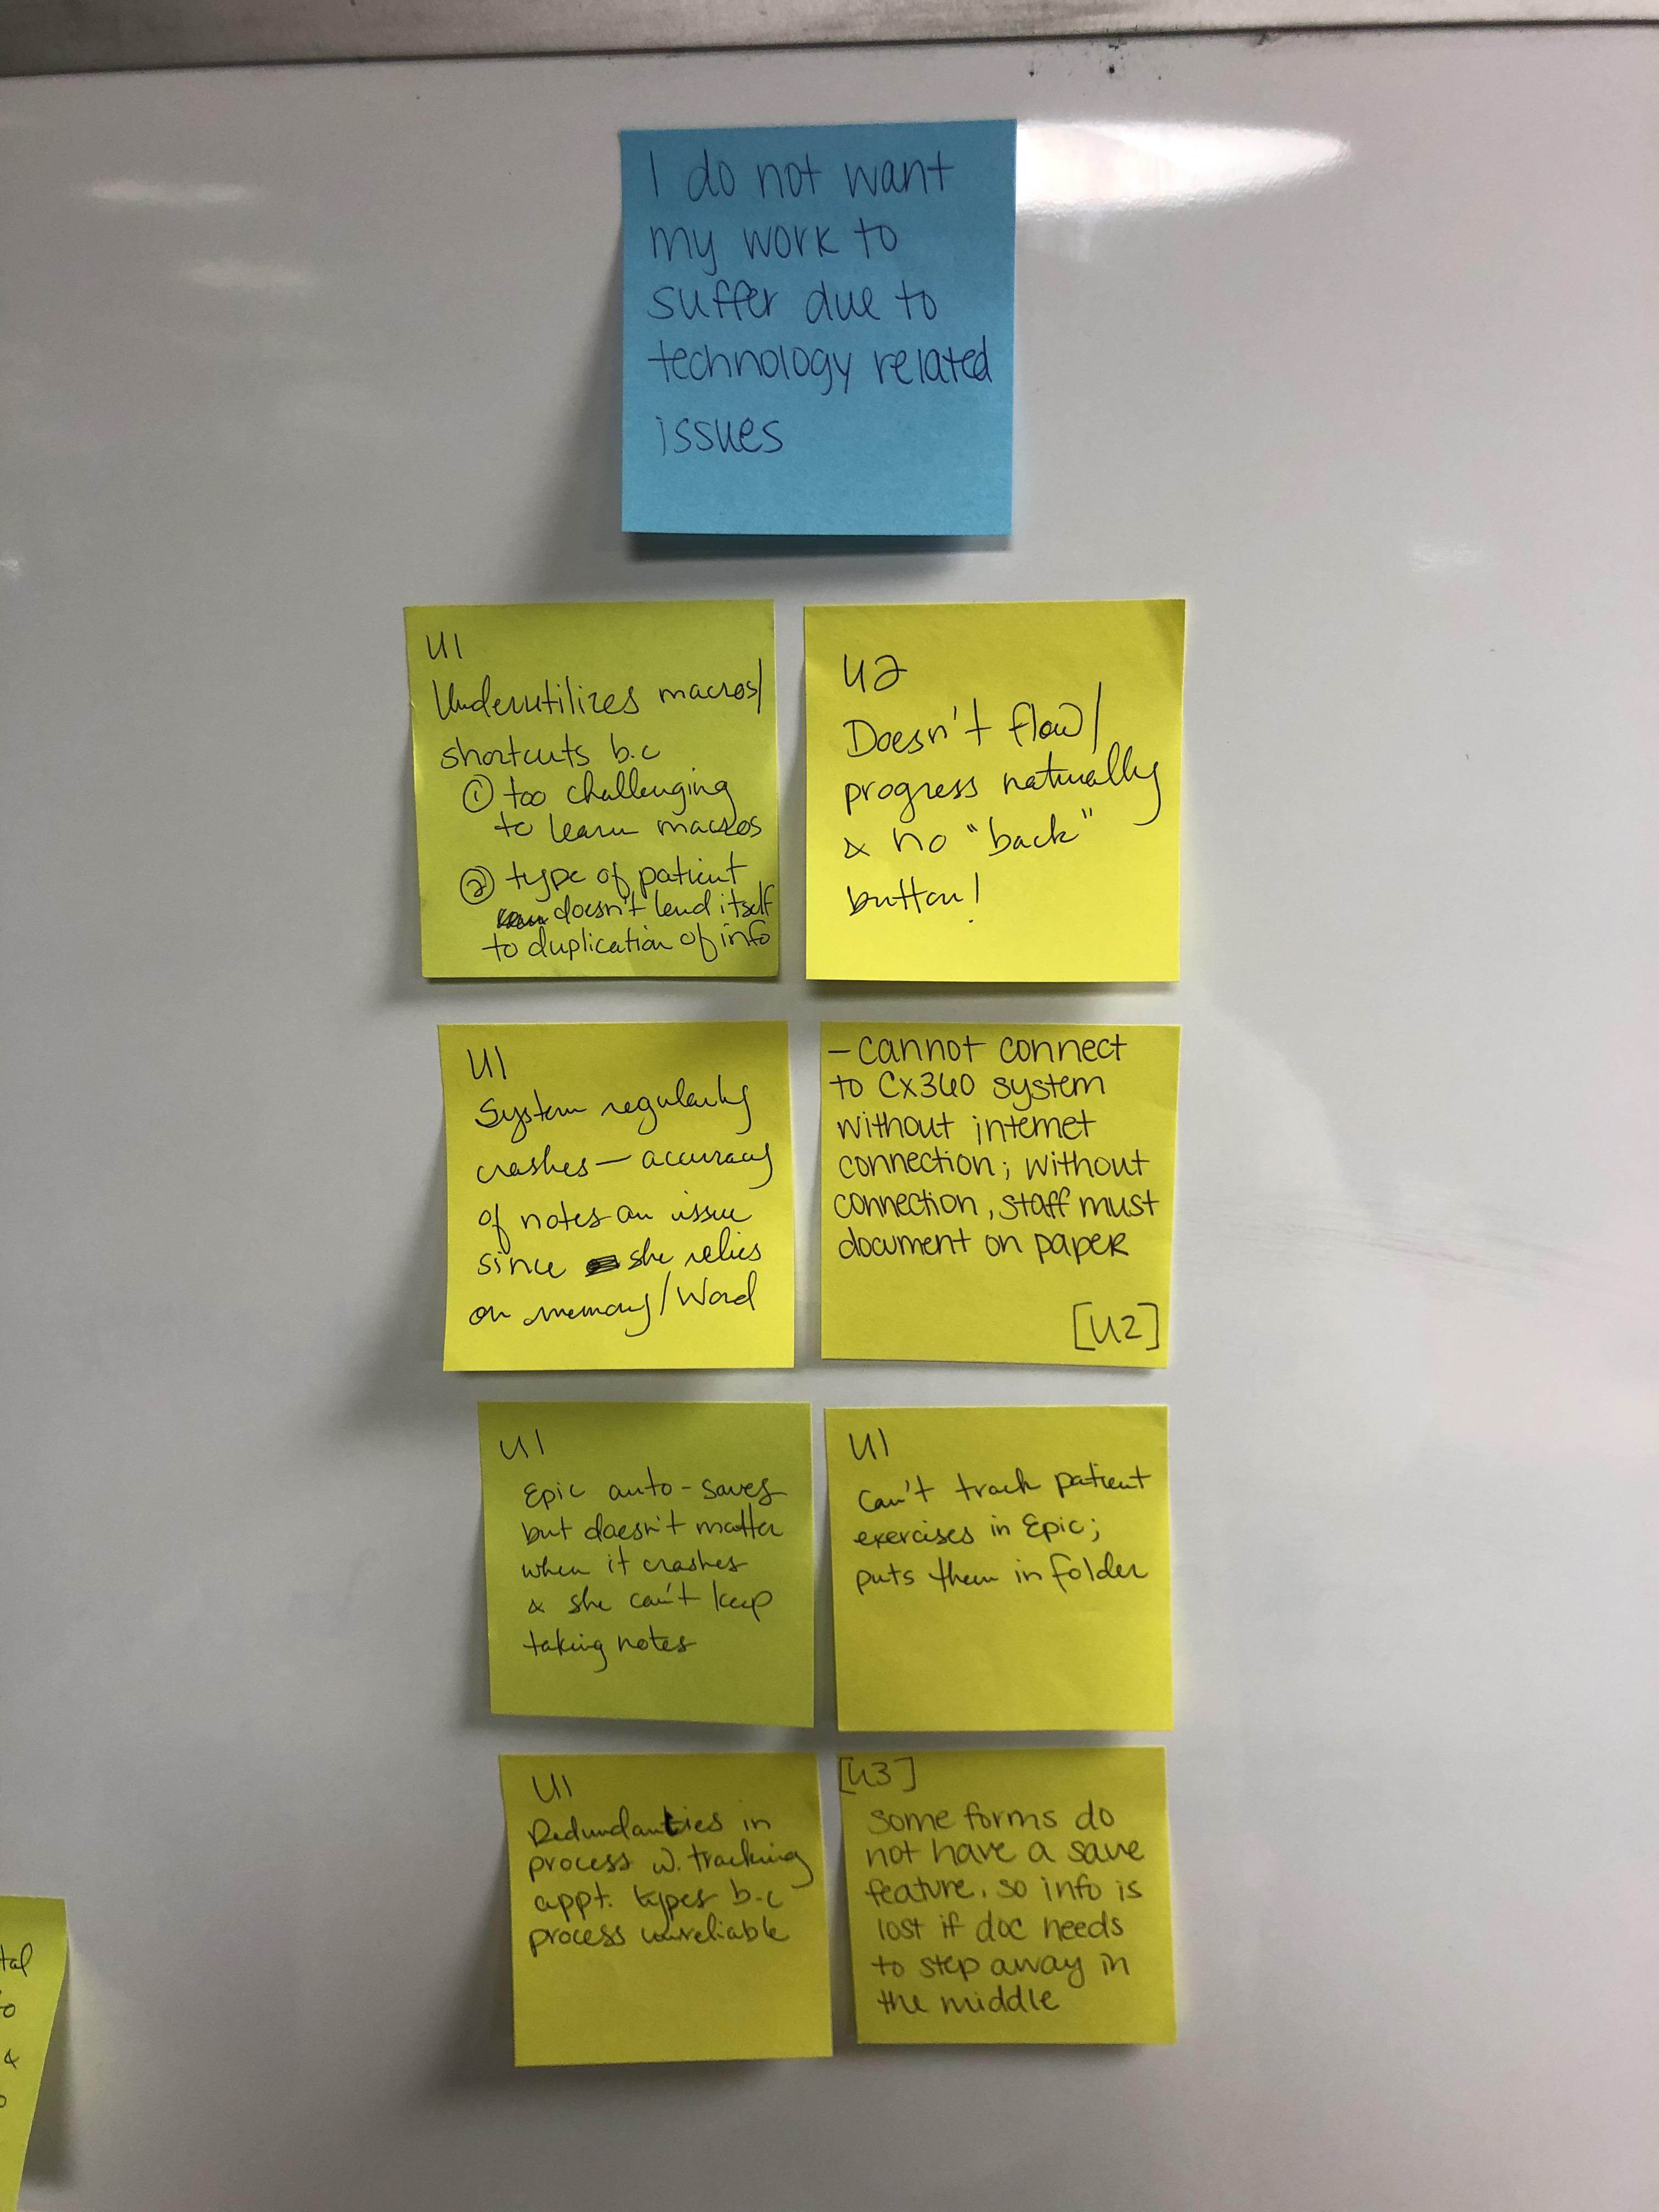 I do not want
my work to
suffer due to
technology related
issues
U1
Underutilizes macros/
shortcuts b.c
① too challenging
to learn macros
② type of patient
doesn't lend itself
to duplication of info
U2
Doesn't flow/
progress naturally
& no "back"
button!
U1
System regularly
crashes — accuracy
of notes an issue
since she relies
on memory/Word
- Cannot connect
to Cx360 system
without internet
connection; without
connection, staff must
document on paper
[U2]
U1
Epic auto-saves
but doesn't matter
when it crashes
& she can't keep
taking notes
U1
Can't track patient
exercises in Epic;
puts them in folder
U1
Redundanties in
process w. tracking
appt. types b.c
process unreliable
[U3]
Some forms do
not have a save
feature, so info is
lost if doc needs
to step away in
the middle
tal
&